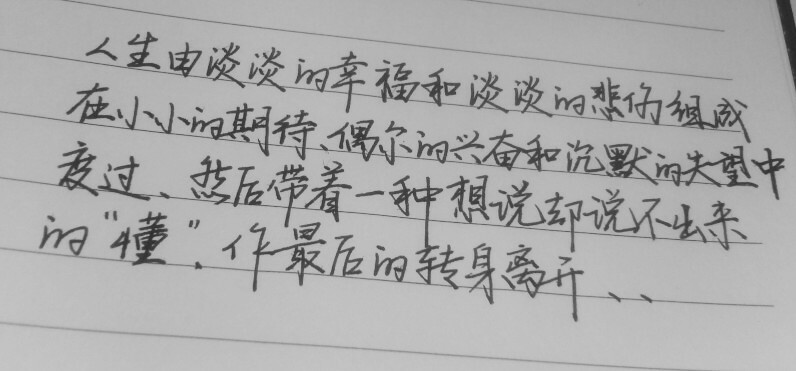 人生由淡淡的幸福和淡淡的悲伤组成
在小小的期待、偶尔的兴奋和沉默的失望中
度过、然后带着一种想说却说不出来
的“懂”、作最后的转身离开、、、